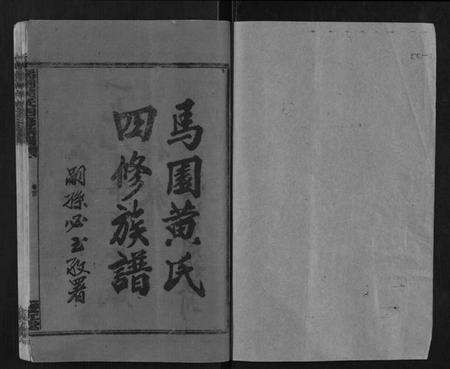 馬園黄氏
四修族譜
嗣孫必玉敬署